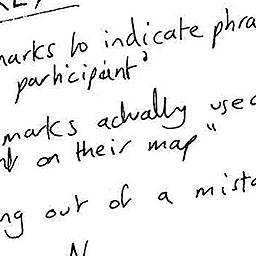 marks to indicate phra
participant"
marks actually used
on their map"
ng out of a mista
N